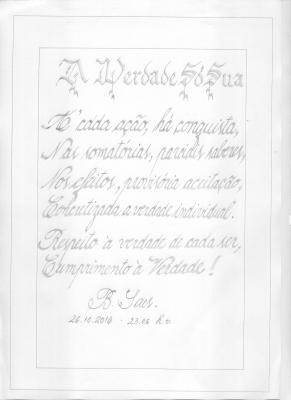 A Verdade Só Sua
A' cada ação, há conquista,
Nas somatórias, parciais saberes,
Nos efeitos, provisória aceitação,
Concretizada a verdade individual.
Respeito à verdade de cada ser,
Cumprimento à Verdade!
B. Saes.
26.10.2016 - 23:06 h.s.